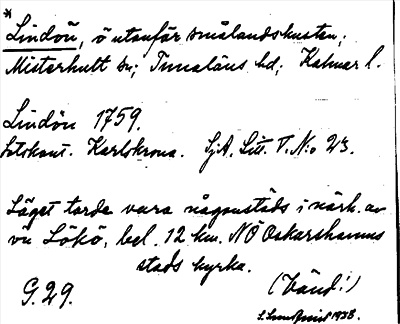 * Lindön, ö utanför smålandskusten;
Misterhult sn; Tunaläns hd; Kalmar l.
Lindön 1759.
Lotskont. Karlskrona. SjA. Litt. V. No 23.
Läget torde vara någonstäds i närh. av
ön Lökö, bel. 12 km. NO Oskarshamns
stads kyrka.
G. 29.
(Vänd!)
1938.